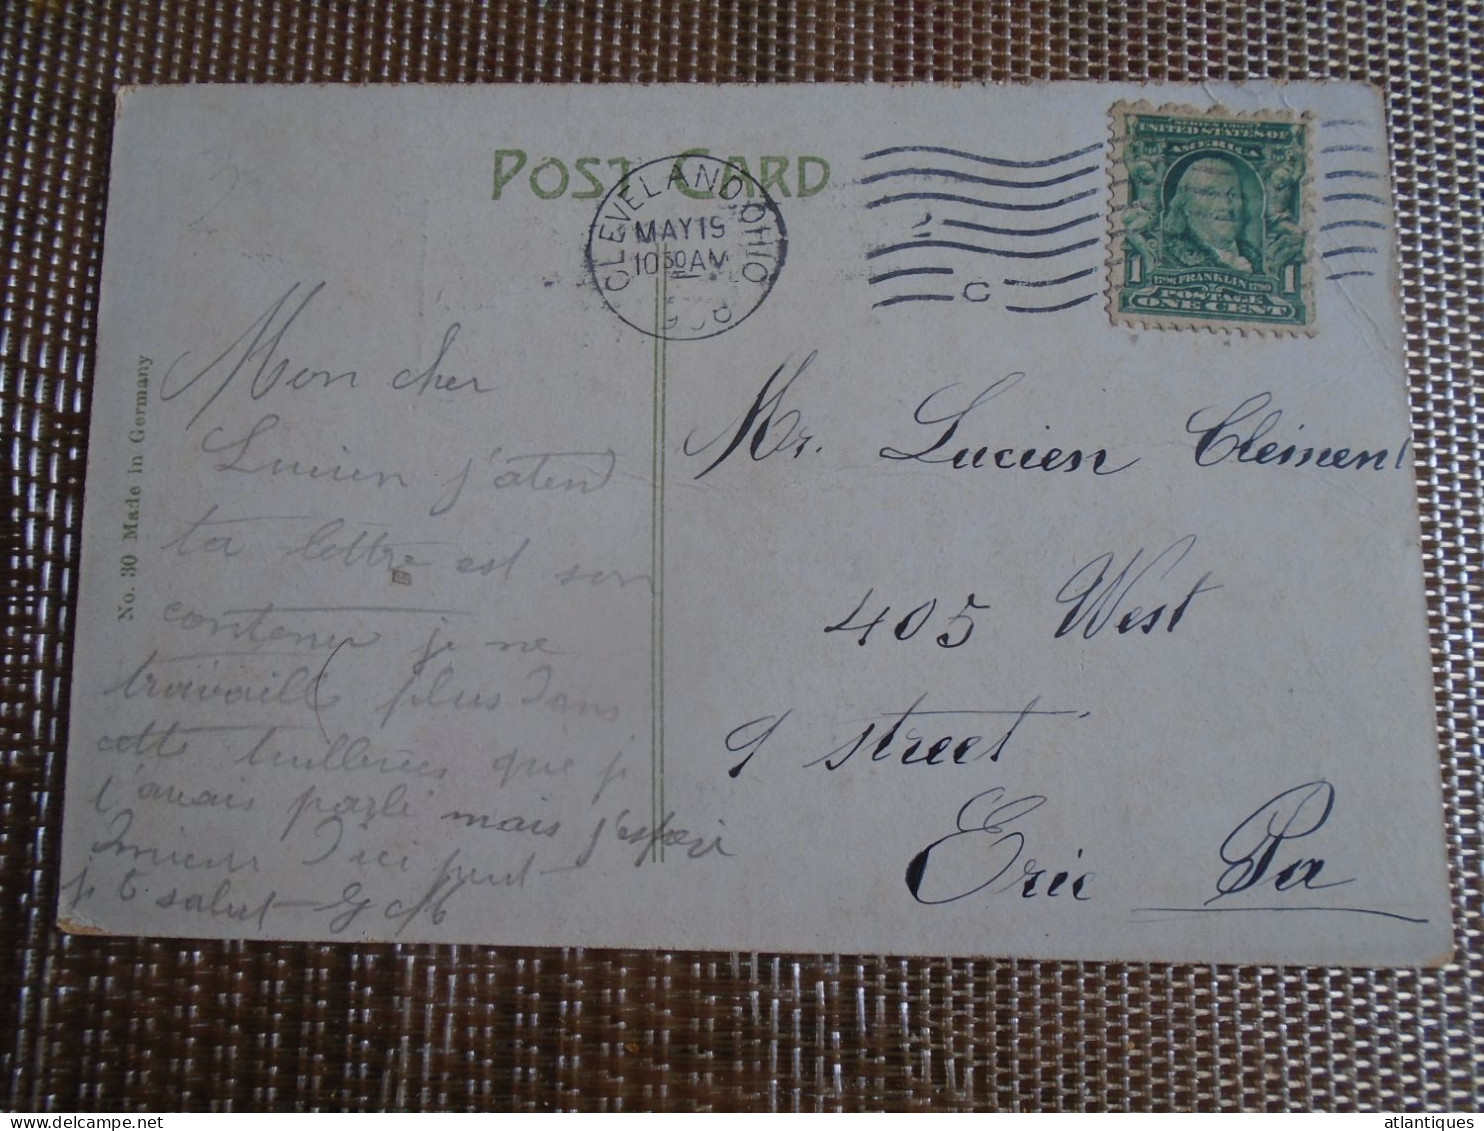 POST CARD
CLEVELAND OHIO
MAY 19
10 30 AM
1908
2
C
UNITED STATES OF
AMERICA
1 FRANKLIN 1
POSTAGE
ONE CENT
No. 30 Made in Germany
Mon cher
Lucien j'atend
ta lettre est son
contenu je ne
travaille plus dans
cette que je
t'avais parlé mais j'espere
mieux d'ici
je te salut
Mr. Lucien Clément
405 West
9 street
Erie Pa
atlantiques